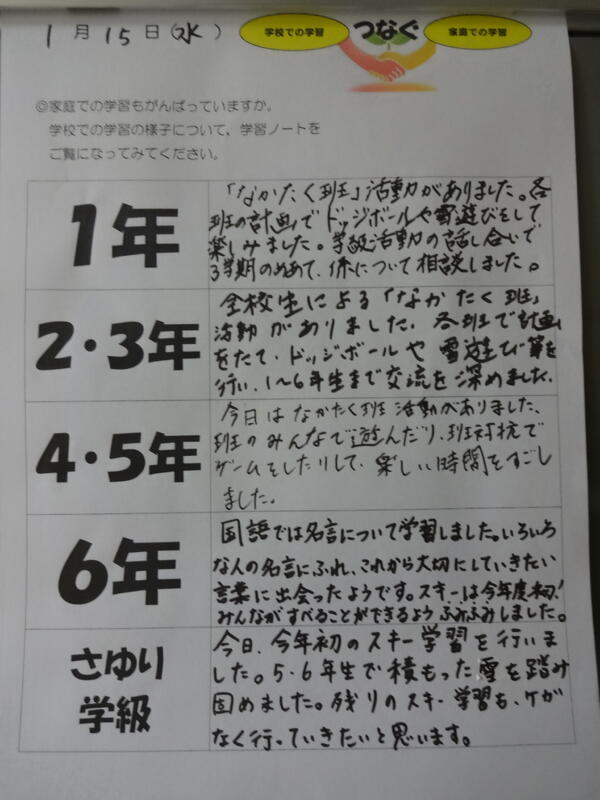 1月15日(水)
学校での学習
つなぐ
家庭での学習
◎家庭での学習もがんばっていますか。
学校での学習の様子について、学習ノートを
ご覧になってみてください。
1年
「なかたく班」活動がありました。各
班の計画でドッジボールや雪遊びをして
楽しみました。学級活動の話し合いで
3学期のめあて、係について相談しました。
2・3年
全校生による「なかたく班」
活動がありました。各班で計画
をたて、ドッジボールや雪遊び等を
行い、1〜6年生まで交流を深めました。
4・5年
今日はなかたく班活動がありました、
班のみんなで遊んだり、班対抗で
ゲームをしたりして、楽しい時間をすごし
ました。
6年
国語では名言について学習しました。いろいろ
な人の名言にふれ、これから大切にしていきたい
言葉に出会ったようです。スキーは今年度初!
みんながすべることができるようふみふみしました。
さゆり
学級
今日、今年初のスキー学習を行いま
した。5・6年生で積もった雪を踏み
固めました。残りのスキー学習も、ケガ
なく行っていきたいと思います。